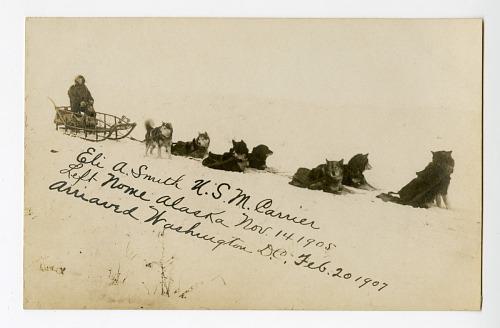 Eli A. Smith U.S.M. Carrier
Left Nome Alaska Nov. 14 1905
Arriaved Washington D.C. Feb. 20 1907